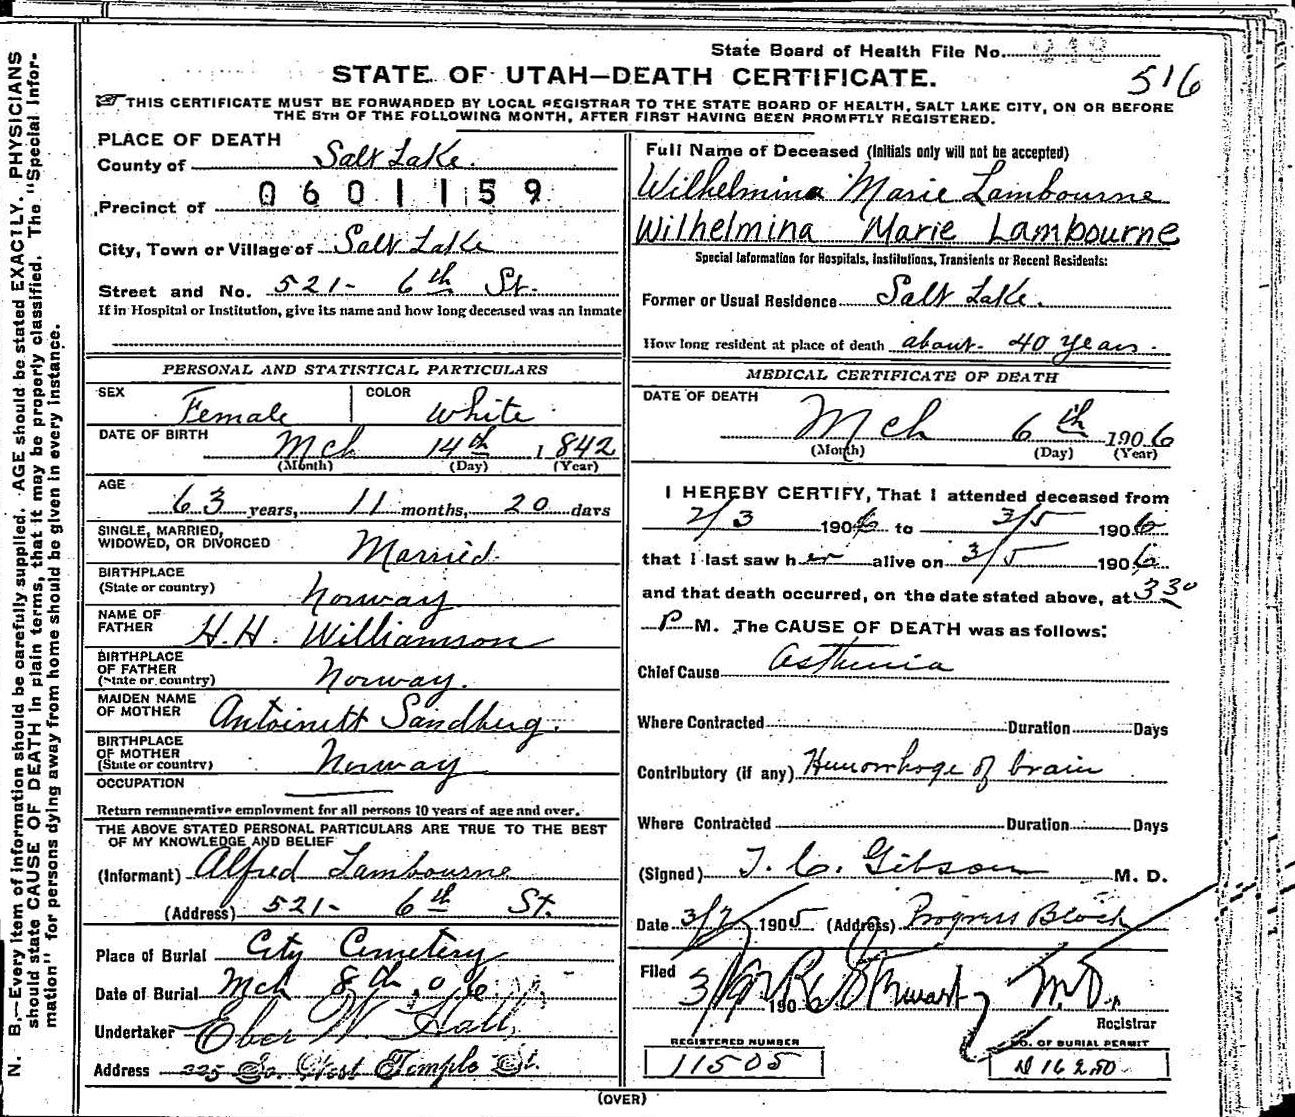 State Board of Health File No.
516
STATE OF UTAH—DEATH CERTIFICATE.
THIS CERTIFICATE MUST BE FORWARDED BY LOCAL REGISTRAR TO THE STATE BOARD OF HEALTH, SALT LAKE CITY, ON OR BEFORE
THE 5TH OF THE FOLLOWING MONTH, AFTER FIRST HAVING BEEN PROMPTLY REGISTERED.
N. B.—Every item of information should be carefully supplied. AGE should be stated EXACTLY. PHYSICIANS
should state CAUSE OF DEATH in plain terms, that it may be properly classified. The "Special Infor-
mation" for persons dying away from home should be given in every instance.
PLACE OF DEATH
County of Salt Lake.
0601159
Precinct of
City, Town or Village of Salt Lake
Street and No. 521- 6th St.
If in Hospital or Institution, give its name and how long deceased was an inmate
PERSONAL AND STATISTICAL PARTICULARS
SEX Female COLOR White
DATE OF BIRTH Mch 14th 1842
(Month) (Day) (Year)
AGE
63 years, 11 months, 20 days
SINGLE, MARRIED,
WIDOWED, OR DIVORCED Married.
BIRTHPLACE
(State or country) Norway
NAME OF
FATHER H. H. Williamson
BIRTHPLACE
OF FATHER
(State or country) Norway.
MAIDEN NAME
OF MOTHER Antoinett Sandberg.
BIRTHPLACE
OF MOTHER
(State or country) Norway
OCCUPATION
Return remunerative employment for all persons 10 years of age and over.
THE ABOVE STATED PERSONAL PARTICULARS ARE TRUE TO THE BEST
OF MY KNOWLEDGE AND BELIEF
(Informant) Alfred Lambourne
(Address) 521- 6th St.
Place of Burial City Cemetery
Date of Burial Mch 8th, 06
Undertaker Eber W. Hall,
Address 225 So. West Temple St.
Full Name of Deceased (Initials only will not be accepted)
Wilhelmina Marie Lambourne
Wilhelmina Marie Lambourne
Special Information for Hospitals, Institutions, Transients or Recent Residents:
Former or Usual Residence Salt Lake.
How long resident at place of death about- 40 years.
MEDICAL CERTIFICATE OF DEATH
DATE OF DEATH
Mch 6th 1906
(Month) (Day) (Year)
I HEREBY CERTIFY, That I attended deceased from
2/3 1906 to 3/5 1906
that I last saw her alive on 3/5 1906
and that death occurred, on the date stated above, at 330
P M. The CAUSE OF DEATH was as follows:
Chief Cause Asthenia
Where Contracted Duration Days
Contributory (if any) Hemorrhage of brain
Where Contracted Duration Days
(Signed) T. C. Gibson M. D.
Date 3/7 1905 (Address) Progress Block
Filed 3/ 190 M.D.
Registrar
REGISTERED NUMBER
11505
NO. OF BURIAL PERMIT
D 16250
(OVER)